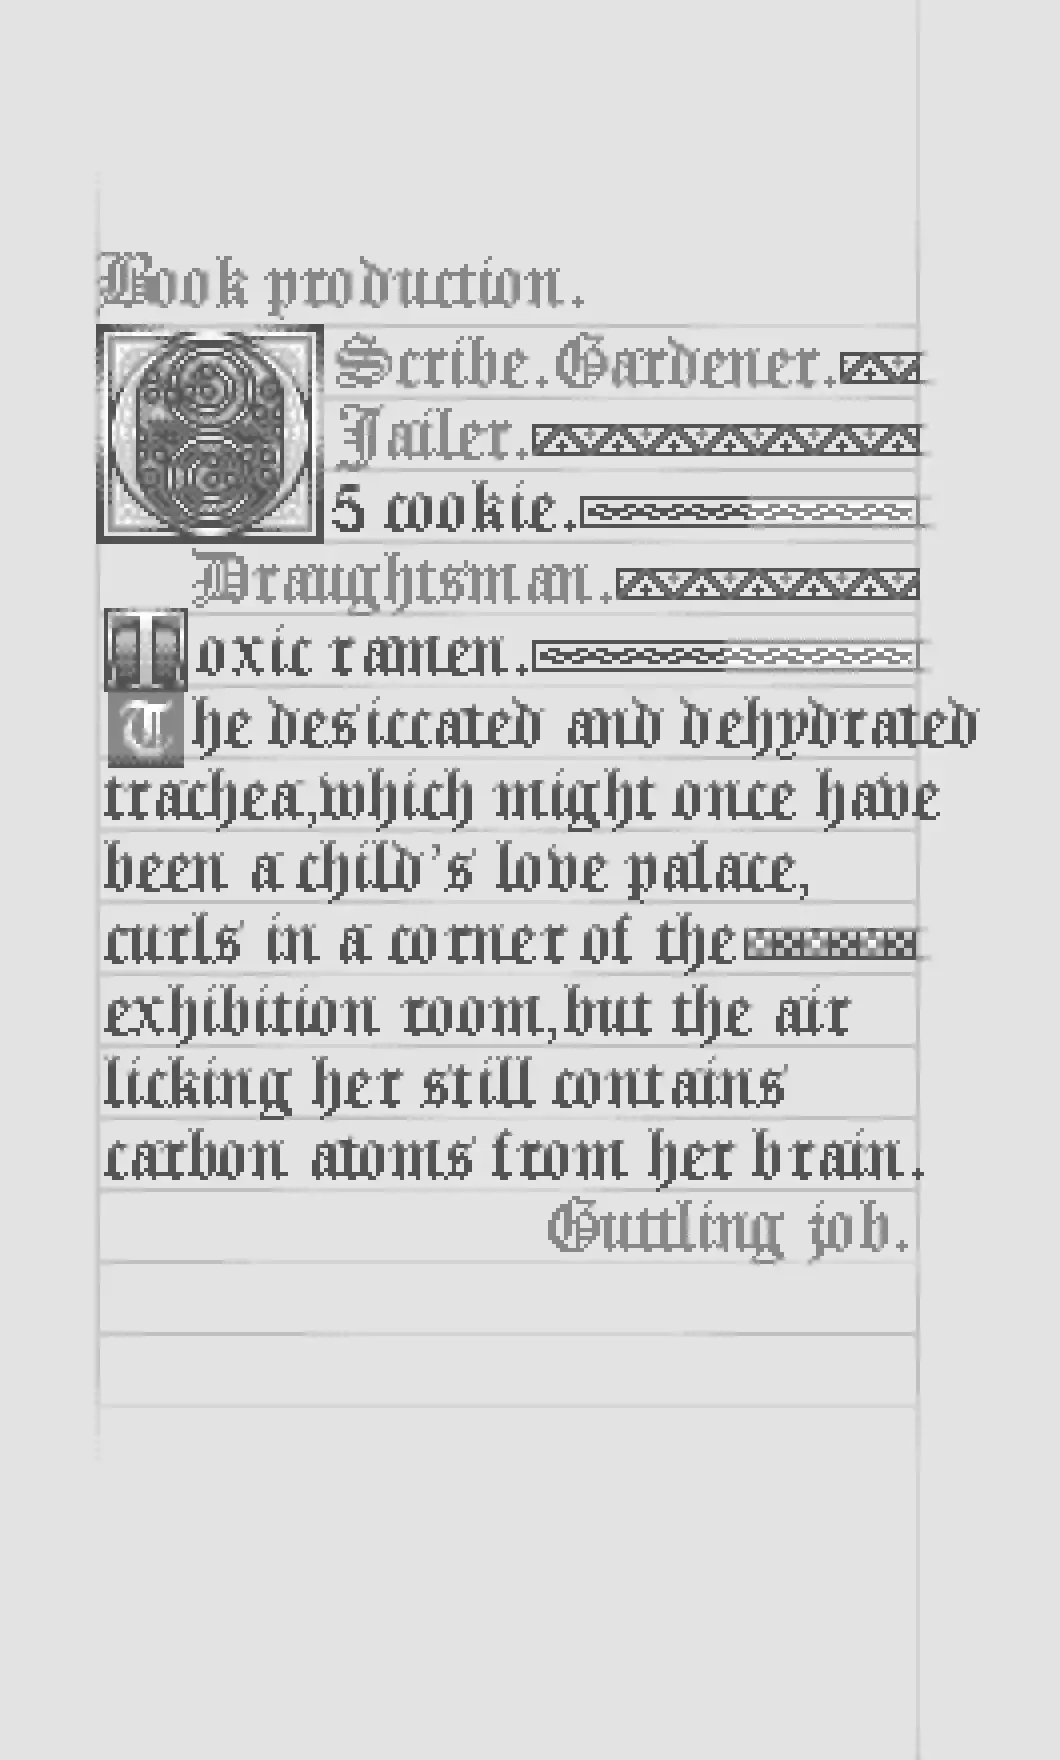 Book production.
Scribe. Gardener.
Jailer.
5 cookie.
Draughtsman.
Toxic ramen.
The desiccated and dehydrated
trachea, which might once have
been a child's love palace,
curls in a corner of the
exhibition room, but the air
licking her still contains
carbon atoms from her brain.
Guttling job.